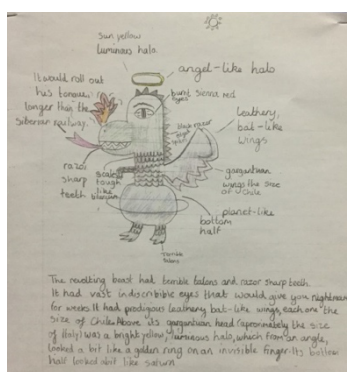 sun yellow
luminous halo
angel-like halo
It would roll out
his tongue,
longer than the
siberian railway.
burnt sienna red
eyes
leathery,
bat-like
wings
razor
sharp
teeth
scales
tough
like
gargantuan
wings the size
of Chile
planet-like
bottom
half
terrible
talons
The revolting beast had terrible talons and razor sharp teeth.
It had vast indiscribible eyes that would give you nightmares
for weeks. It had prodigious leathery bat-like wings, each one the
size of Chile. Above its gargantuan head (aproximately the size
of Italy) was a bright yellow, luminous halo, which from an angle,
looked a bit like a golden ring on an invisible finger. Its bottom
half looked abit like saturn